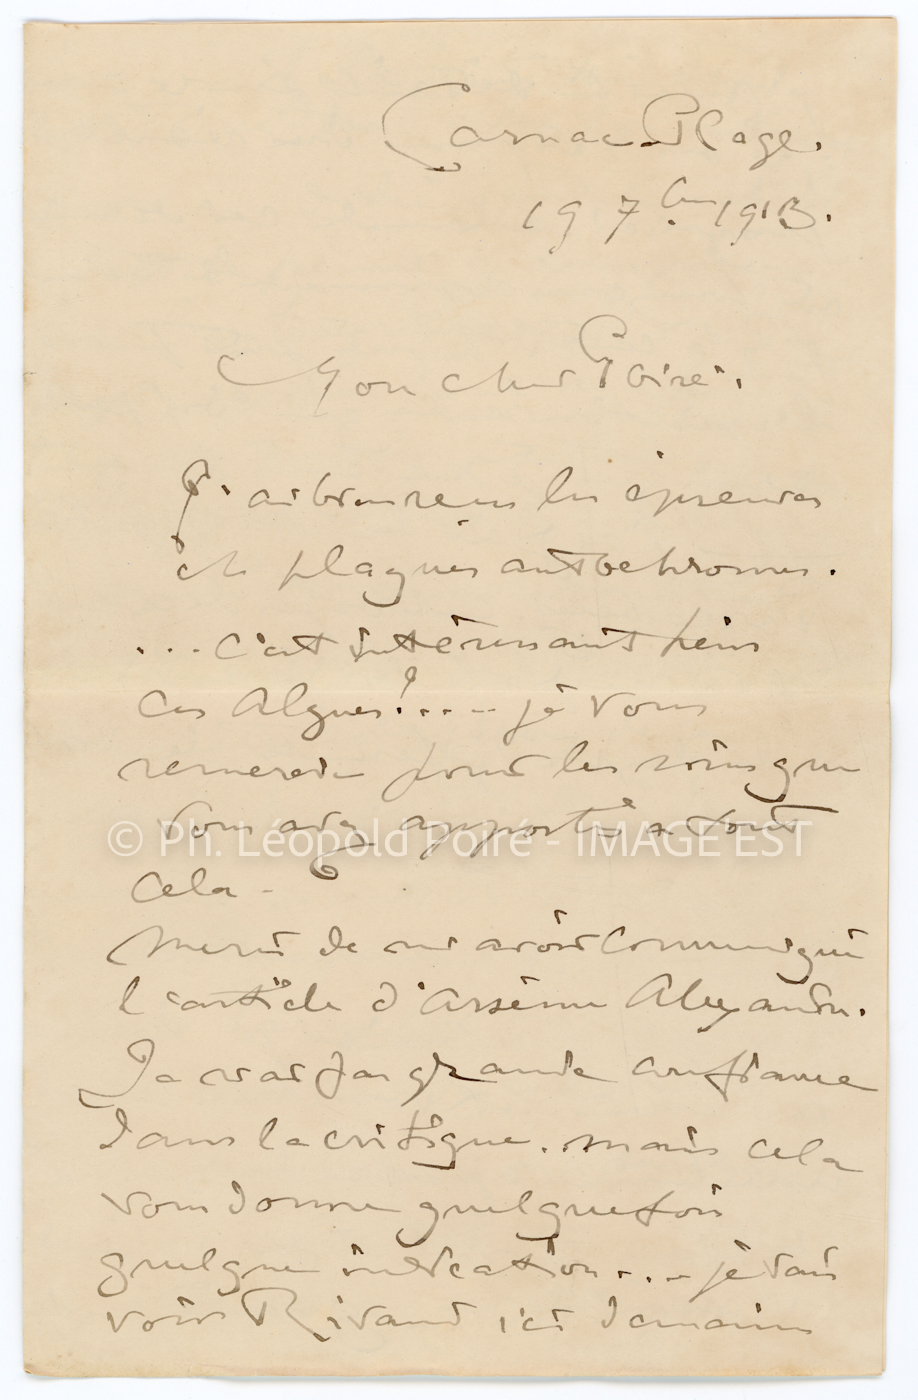 Carnac-Plage.
19 7bre 1913.
Mon cher Poiré.
J'ai bien reçu les épreuves
et plaques autochromes.
... c'est intéressant hein
ces Algues!.... je vous
remercie pour les soins que
vous avez apportés à tout
© Ph. Léopold Poiré - IMAGE'EST
cela -
Merci de m'avoir communiqué
l'article d'Arsène Alexandre.
Je n'ai pas grande confiance
dans la critique. mais cela
vous donne quelquefois
quelque indication... je vais
voir Rivaud ici demain